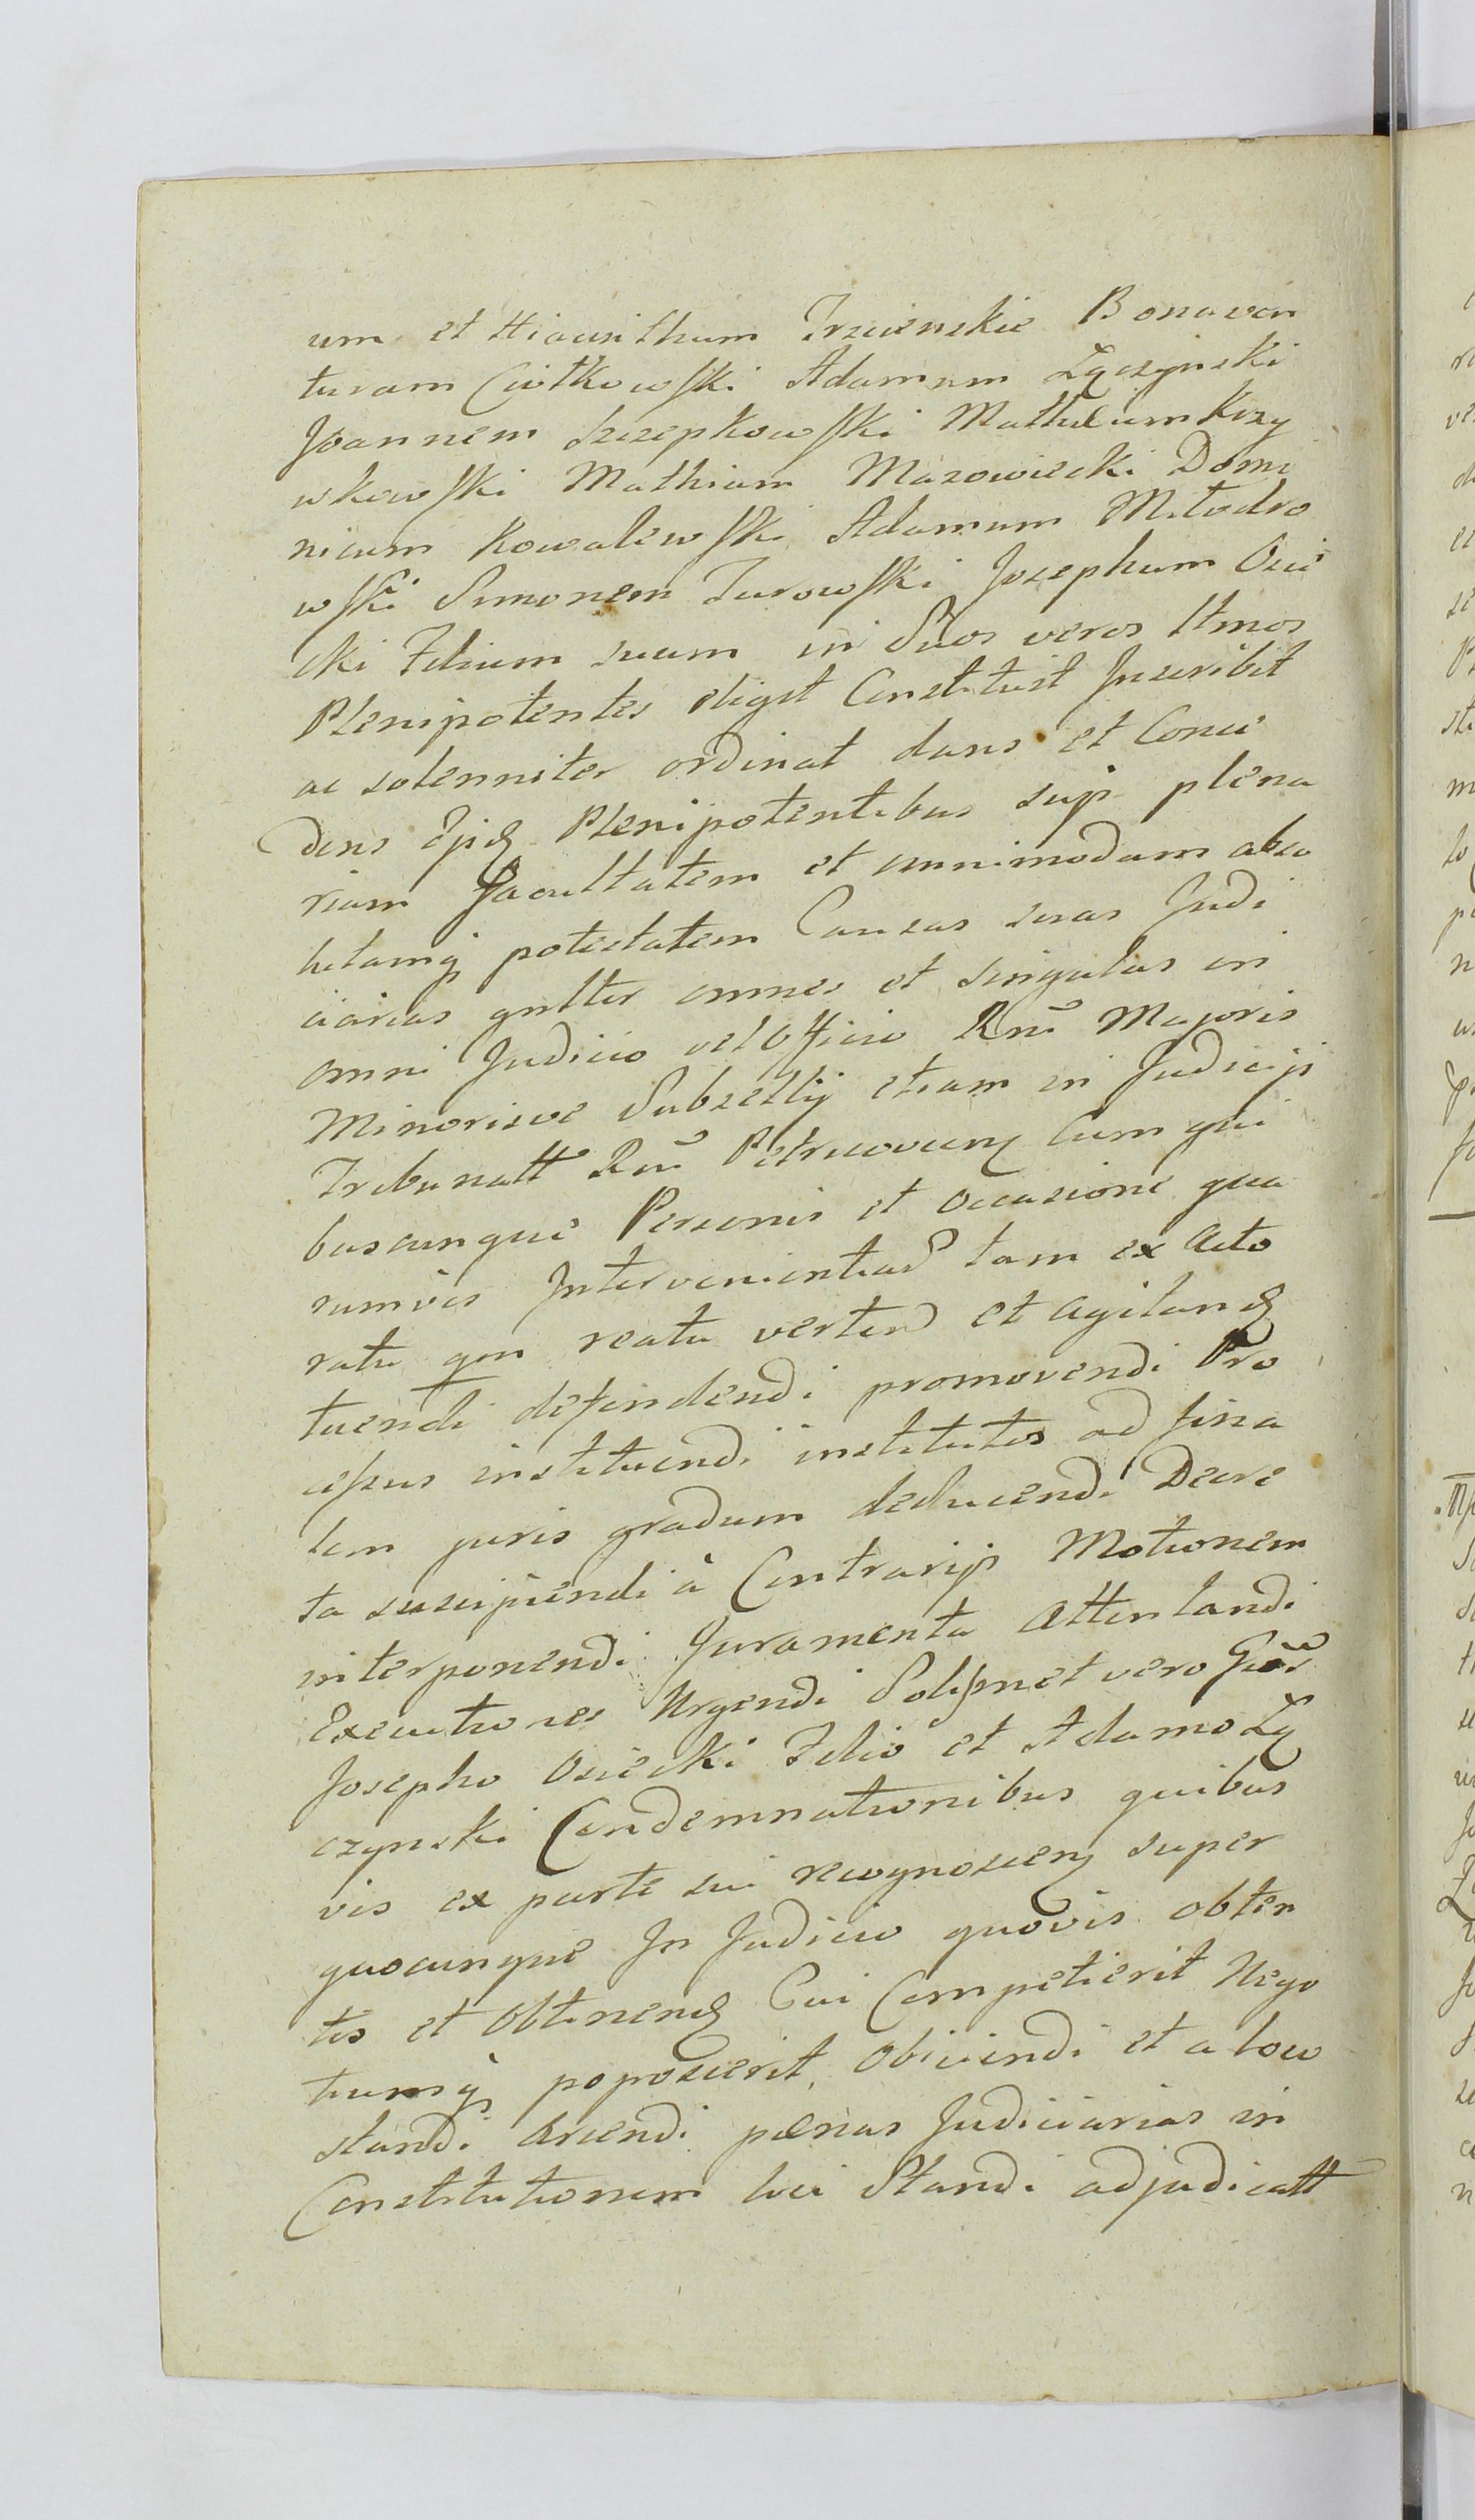 um et Hiacinthum Trzcienskie Bonaven
turam Ciołkowski Adamum Łączynski
Joannem Szczepkowski Matheum Krzy
wkowski Mathiam Mazowiecki Domi
nicum Kowalewski Adamum Miłodro
wski Simonem Turowski Josephum Osie
cki Filium suum in Suos veros Ltmos
Plenipotentes eligit Constituit Inscribit
ac solenniter ordinat dans et Conce
dens Ijsd Plenipotentibus sup. plena
riam Facultatem et omnimodam abso
lutamq potestatem Causas suas Judi
ciarias gnltter omnes et singulas in
omni Judicio vel Officio Rni Majoris
Minorisve Subsellij etiam in Judicijs
Tribunalt Rni Petricovien Cum qui
buscunque Personis et occasione qua
rumvis Intervenientiad tam ex acto
ratu qm reatu vertend et agitand
tuendi defendendi promovendi Pro
cessus instituendi institutos ad fina
lem juris gradum deducendi Decre
ta suscipiendi à Contrarijs Motionem
interponendi Juramenta Attentandi
Executiones Urgendi Solismet vero Gnosis
Josepho Osiecki Filio et Adamo Łą
czynski Condemnationibus quibus
vis ex parte sui recognoscen super
quocunque In Judicio quovis obten
tis et obtinend Cui Competierit Nego
tiumq poposcerit, obiiciendi et a loco
standi Arcendi pœnas Judiciarias in
Constitutionem loci Standi adjudicatt